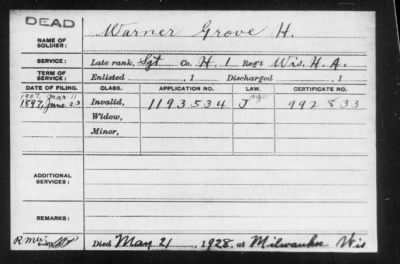 DEAD
NAME OF SOLDIER: Warner Grove H.
SERVICE: Late rank, Sgt Co. H. 1 Reg't Wis. H. A.
TERM OF SERVICE: Enlisted , 1 Discharged , 1
DATE OF FILING. CLASS. APPLICATION NO. LAW. CERTIFICATE NO.
1907, Mar 11
1897, June 23 Invalid, 1193534 J age 992833
Widow,
Minor,
ADDITIONAL SERVICES:
REMARKS:
Died May 21, 1928, at Milwaukee Wis